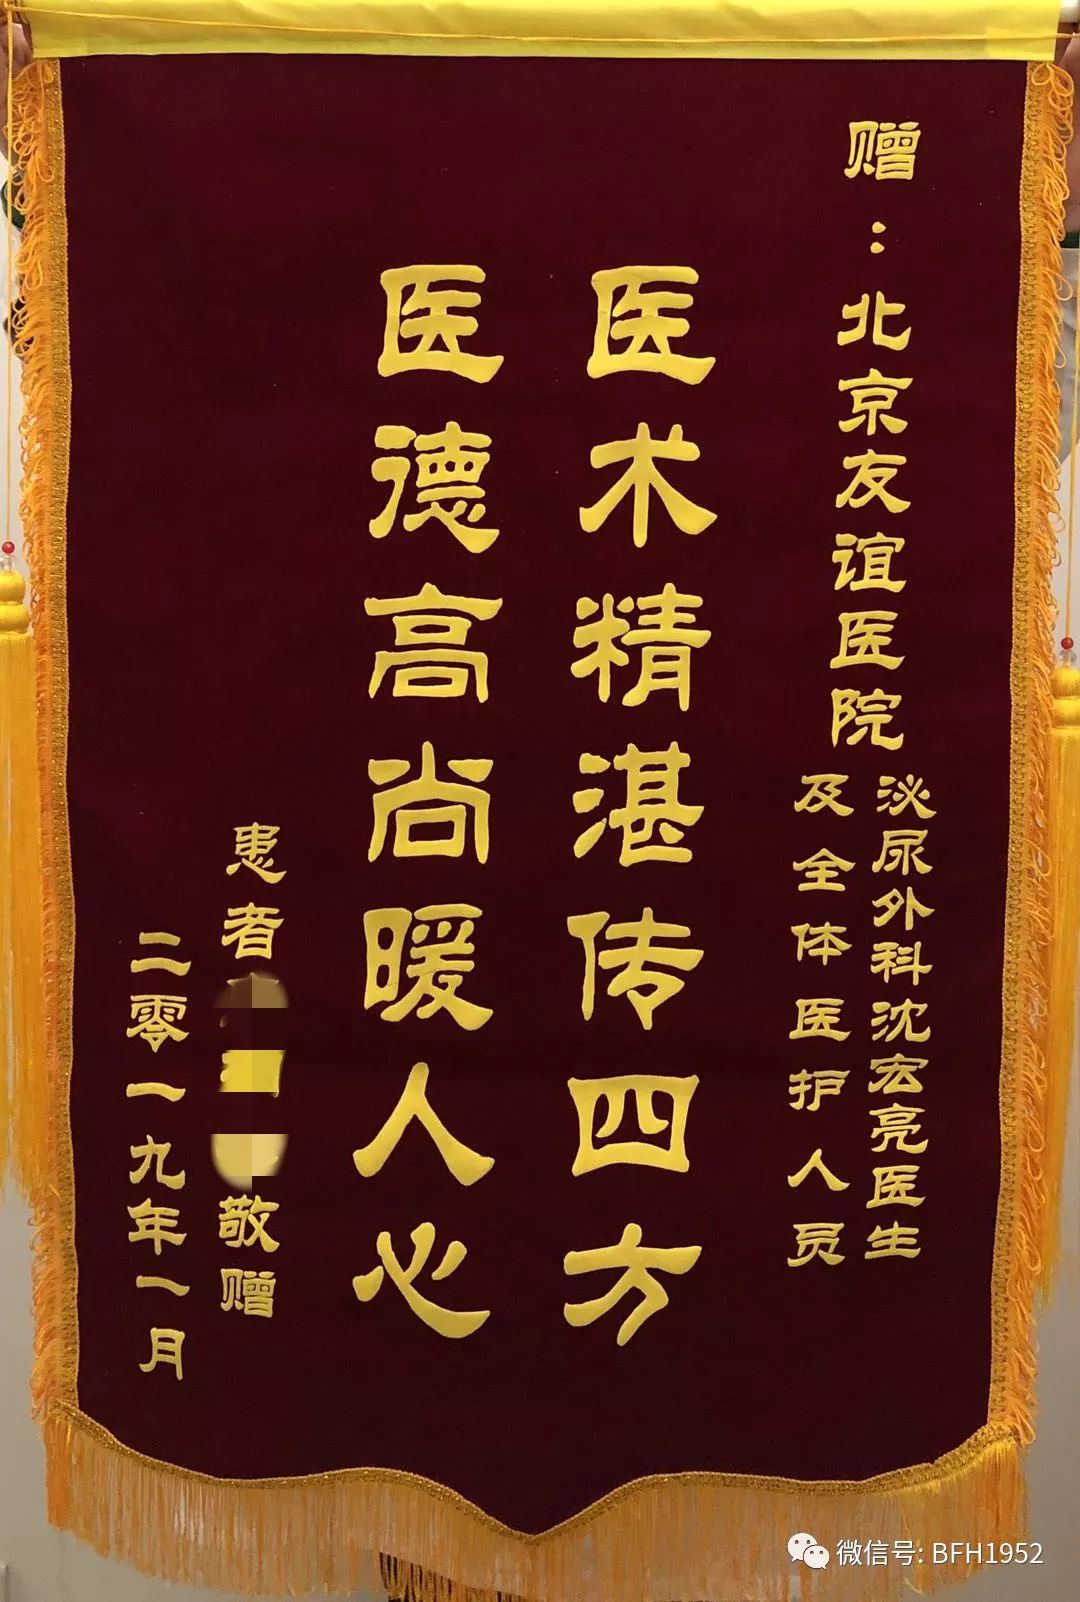 赠：北京友谊医院
泌尿外科沈宏亮医生
及全体医护人员
医术精湛传四方
医德高尚暖人心
患者
敬赠
二零一九年一月
微信号: BFH1952